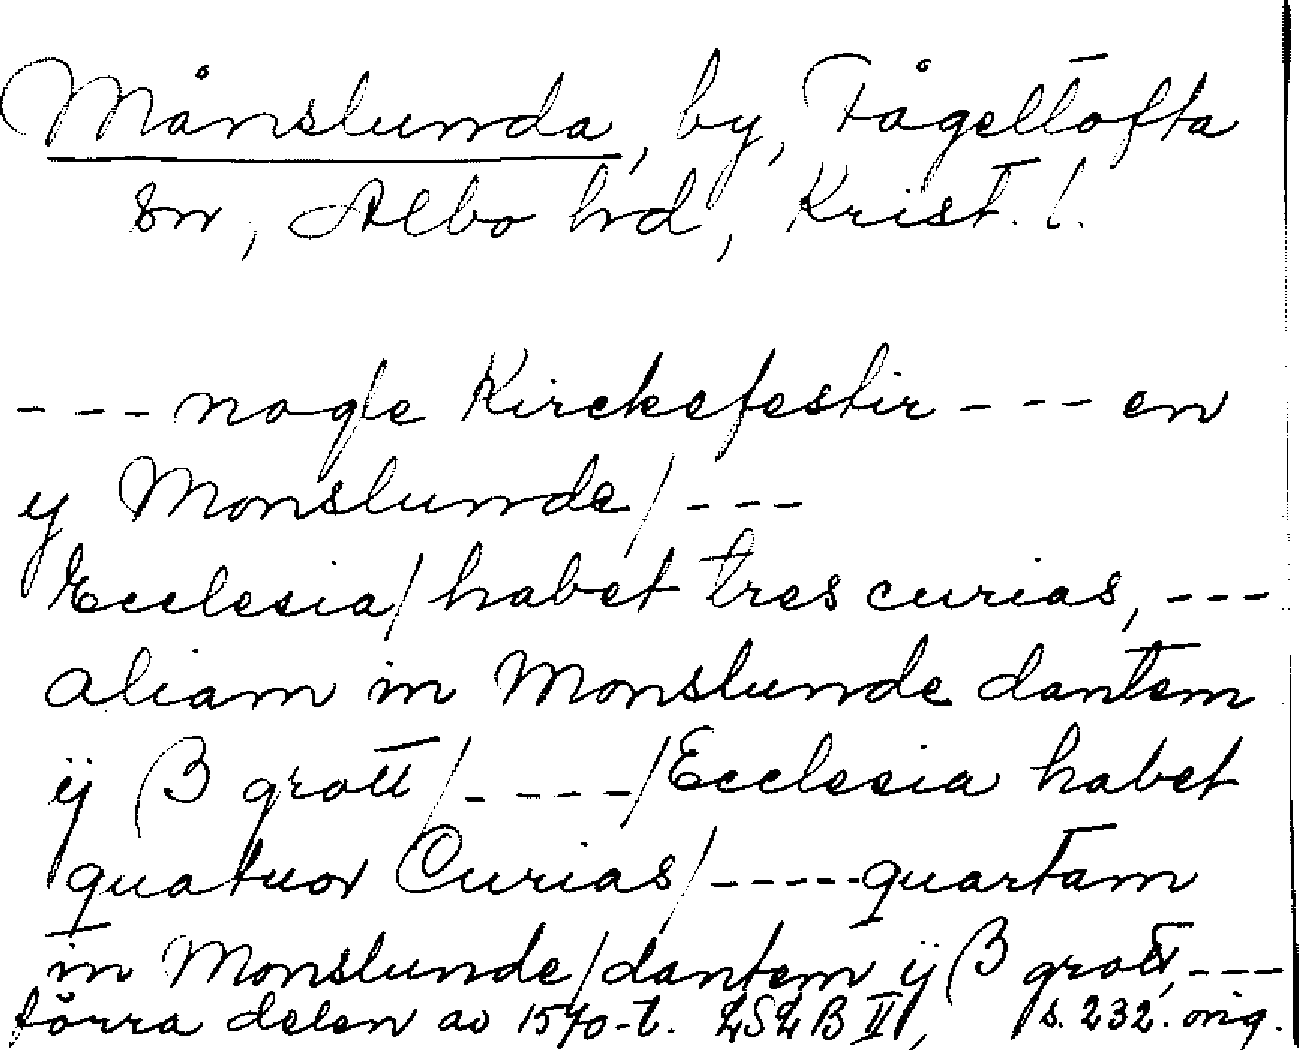 Månslunda, by, Fågeltofta
sn, Albo hd, Krist. l.
--- nogle Kirckefestir --- en
y Monslunde/ ---
Ecclesia/ habet tres curias, ---
aliam in Monslunde dantem
ÿ ß grott/ ----/ Ecclesia habet
quatuor Curias/ ----- quartam
in Monslunde/ dantem ÿ ß grott, ---
förra delen av 1570-t. LSLB II, s. 232. orig.